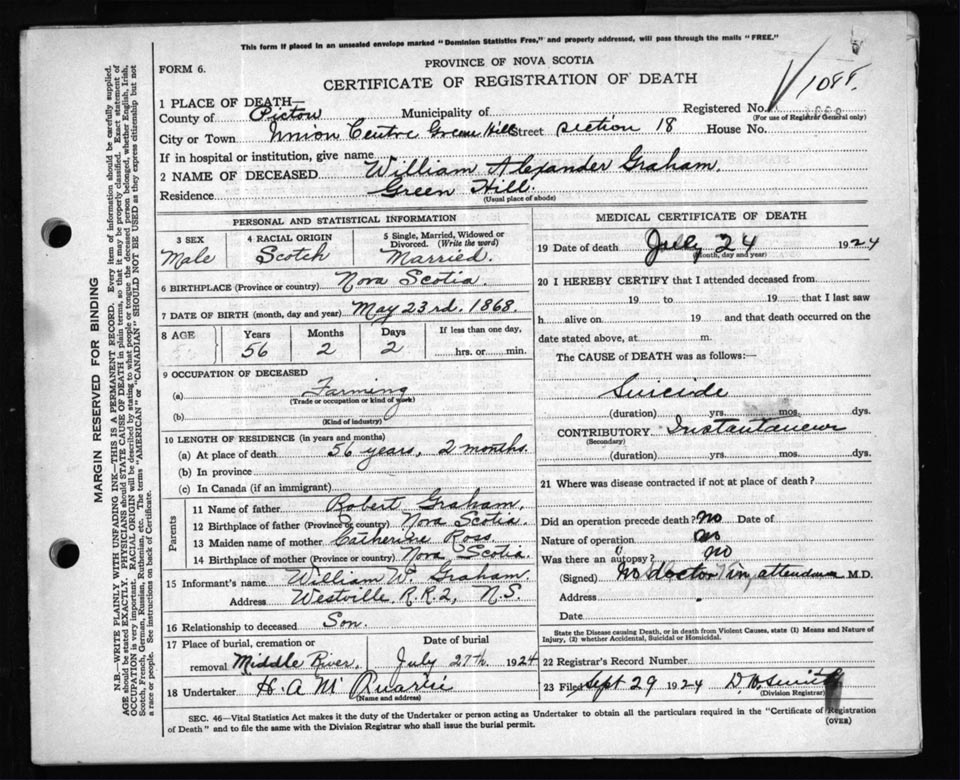 This form if placed in an unsealed envelope marked "Dominion Statistics Free," and properly addressed, will pass through the mails "FREE."
FORM 6.
PROVINCE OF NOVA SCOTIA
CERTIFICATE OF REGISTRATION OF DEATH
1 PLACE OF DEATH—
County of Pictou Municipality of Registered No. 1088.
(For use of Registrar General only)
City or Town Union Centre Green Hill Street section 18 House No.
If in hospital or institution, give name
2 NAME OF DECEASED William Alexander Graham.
Residence Green Hill.
(Usual place of abode)
PERSONAL AND STATISTICAL INFORMATION
3 SEX 4 RACIAL ORIGIN 5 Single, Married, Widowed or Divorced. (Write the word)
Male Scotch Married.
6 BIRTHPLACE (Province or country) Nova Scotia.
7 DATE OF BIRTH (month, day and year) May 23rd. 1868.
8 AGE Years Months Days If less than one day,
56 2 2 hrs. or min.
9 OCCUPATION OF DECEASED
(a) Farming
(Trade or occupation or kind of work)
(b)
(Kind of industry)
10 LENGTH OF RESIDENCE (in years and months)
(a) At place of death 56 years, 2 months.
(b) In province
(c) In Canada (if an immigrant)
Parents
11 Name of father Robert Graham.
12 Birthplace of father (Province or country) Nova Scotia.
13 Maiden name of mother Catherine Ross.
14 Birthplace of mother (Province or country) Nova Scotia.
15 Informant's name William W. Graham.
Address Westville, R.R.2, N.S.
16 Relationship to deceased Son.
17 Place of burial, cremation or Date of burial
removal Middle River. July 27th. 1924
18 Undertaker H. A. Mc
(Name and address)
MEDICAL CERTIFICATE OF DEATH
19 Date of death July 24 1924
(Month, day and year)
20 I HEREBY CERTIFY that I attended deceased from
19 to 19 that I last saw
h alive on 19 and that death occurred on the
date stated above, at m.
The CAUSE of DEATH was as follows:—
Suicide
(duration) yrs. mos. dys.
CONTRIBUTORY Instantaneus
(Secondary)
(duration) yrs. mos. dys.
21 Where was disease contracted if not at place of death?
Did an operation precede death? no Date of
Nature of operation no
Was there an autopsy? no
(Signed) No doctor in attendance M.D.
Address
Date
State the Disease causing Death, or in death from Violent Causes, state (1) Means and Nature of
Injury, (2) whether Accidental, Suicidal or Homicidal.
22 Registrar's Record Number
23 Filed Sept 29 1924 D. W. Smith
(Division Registrar)
SEC. 46—Vital Statistics Act makes it the duty of the Undertaker or person acting as Undertaker to obtain all the particulars required in the "Certificate of Registration
of Death" and to file the same with the Division Registrar who shall issue the burial permit.
(OVER)
MARGIN RESERVED FOR BINDING
N.B. WRITE PLAINLY WITH UNFADING INK—THIS IS A PERMANENT RECORD. Every item of information should be carefully supplied.
AGE should be stated EXACTLY. PHYSICIANS should STATE CAUSE OF DEATH in plain terms, so that it may be properly classified. Exact statement of
OCCUPATION is very important. RACIAL ORIGIN will be described by stating to what people or tongue the deceased person belonged, whether English, Irish,
Scotch, French, German, Russian, Ruthenian, etc. The terms "AMERICAN" or "CANADIAN" SHOULD NOT BE USED as they express citizenship but not
a race or people. See instructions on back of Certificate.